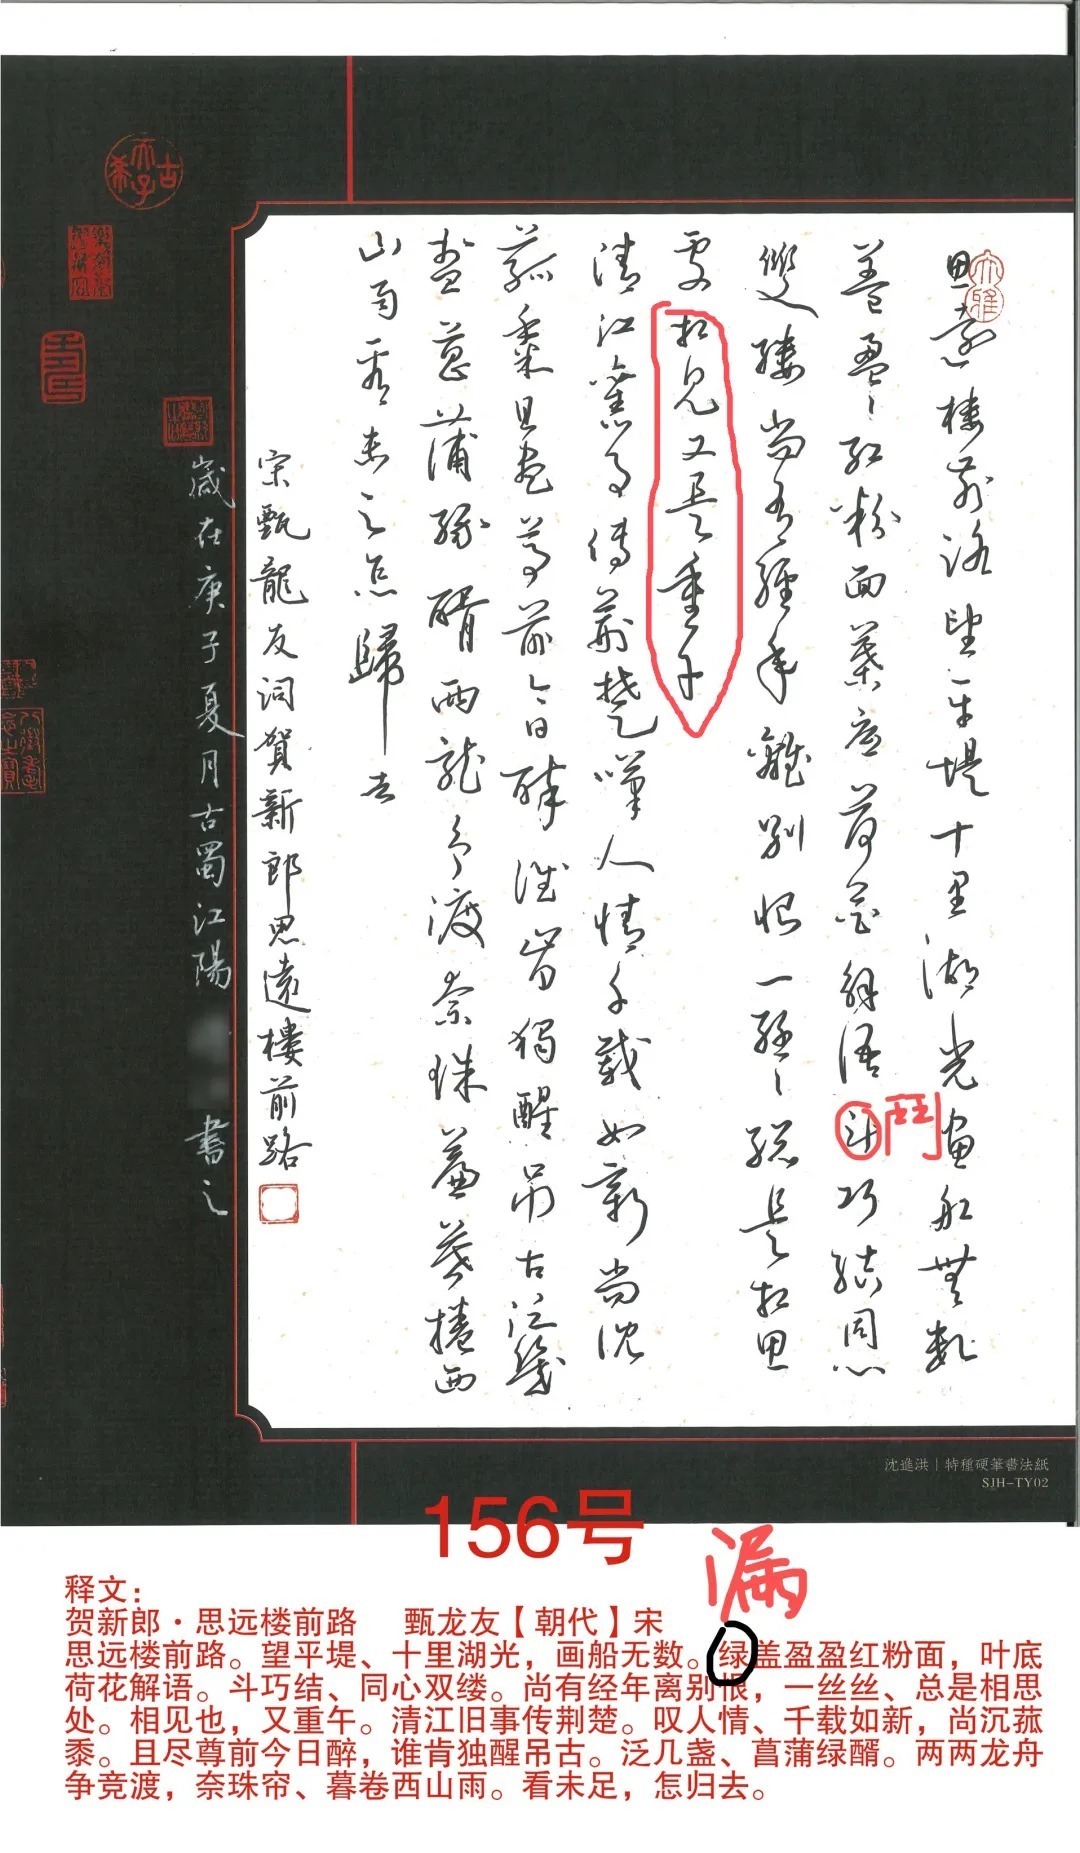 大雅
思遠樓前路望平堤十里湖光畫船無數
蓋盈〻紅粉面葉底荷花解語斗巧結同心
鬥
雙縷尚有經年離別恨一絲〻總是相思
處相見又是重午
清江舊事傳荊楚嘆人情千載如新尚沈
菰黍且盡尊前今日醉誰肯獨醒弔古泛幾
盞菖蒲綠醑兩龍爭渡奈珠簾暮捲西
山雨看未足怎歸去
宋甄龍友詞賀新郎思遠樓前路
歲在庚子夏月古蜀江陽
書之
古希天子
沈進洪｜特種硬筆書法紙
SJH-TY02
156号
漏
释文：
贺新郎·思远楼前路 甄龙友【朝代】宋
思远楼前路。望平堤、十里湖光，画船无数。绿盖盈盈红粉面，叶底
荷花解语。斗巧结、同心双缕。尚有经年离别恨，一丝丝、总是相思
处。相见也，又重午。清江旧事传荆楚。叹人情、千载如新，尚沉菰
黍。且尽尊前今日醉，谁肯独醒吊古。泛几盏、菖蒲绿醑。两两龙舟
争竞渡，奈珠帘、暮卷西山雨。看未足，怎归去。